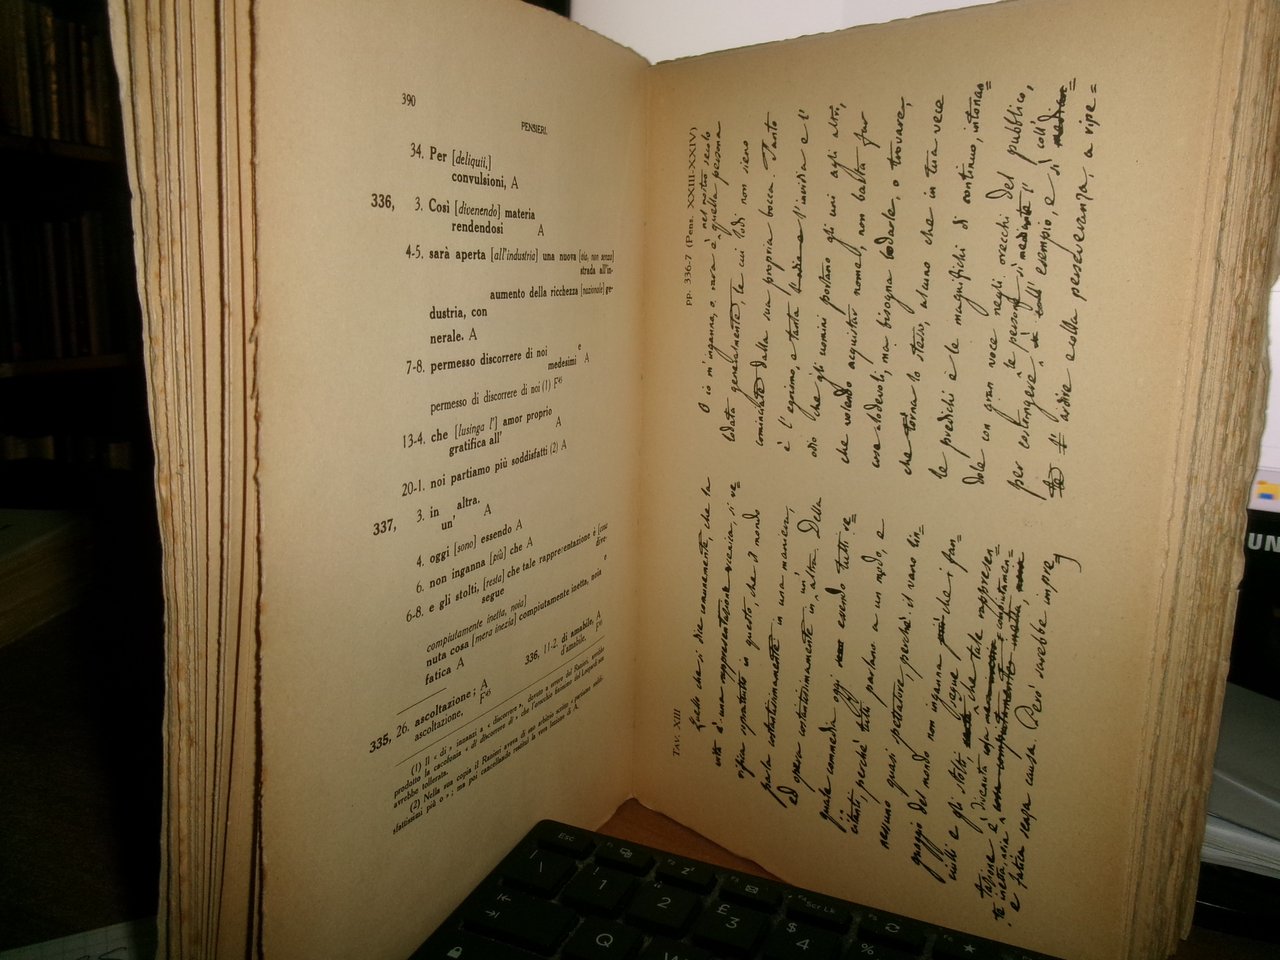 390
PENSIERI.
34. Per [deliquii,]
convulsioni, A
336, 3. Così [divenendo] materia
rendendosi A
4-5. sarà aperta [all'industria] una nuova [via, non senza]
strada all'in-
aumento della ricchezza [nazionale] ge-
dustria, con
nerale. A
7-8. permesso discorrere di noi e
medesimi A
permesso di discorrere di noi (1) F⁴⁵
13-4. che [lusinga l'] amor proprio
gratifica all' A
20-1. noi partiamo più soddisfatti (2) A
337, 3. in altra.
un' A
4. oggi [sono] essendo A
6. non inganna [più] che A
6-8. e gli stolti, [resta] che tale rappresentazione è [cosa
segue dive-
compiutamente inetta, noia] e
nuta cosa [mera inezia] compiutamente inetta, noia
fatica A
335, 26. ascoltazione; A
ascoltazione, F⁴⁵
336, 11-2. di amabile, A
d'amabile, F⁴⁵
(1) Il « di » innanzi a « discorrere », dovuto a errore del Ranieri, avrebbe
prodotto la cacofonia « di discorrere di » che l'orecchio finissimo del Leopardi non
avrebbe tollerata.
(2) Nella sua copia il Ranieri aveva di suo arbitrio scritto « partiamo soddi-
sfattissimi più o » ; ma poi cancellando restituì la vera lezione di A.
pp. 336-7 (Pens. XXIII-XXIV)
O io m'inganno, o rara è nel nostro secolo quella persona
lodata generalmente, le cui lodi non sieno
cominciate dalla sua propria bocca. Tanto
è l'egoismo, e tanta l'invidia e l'
odio che gli uomini portano gli uni agli altri,
che volendo acquistar nome, non basta far
cose lodevoli, ma bisogna lodarle, o trovare,
che torna lo stesso, alcuno che in tua vece
le predichi e le magnifichi di continuo, intonan=
dole con gran voce negli orecchi del pubblico,
per costringere le persone sì mediante l'esempio, e sì coll'
ardire e colla perseveranza, a ripe=
TAV. XIII
Quello che si dice comunemente, che la
vita è una rappresentazione scenica, si ve=
rifica soprattutto in questo, che il mondo
parla costantissimamente in una maniera,
ed opera costantissimamente in un'altra. Della
quale commedia oggi essendo tutti re=
citanti, perchè tutti parlano a un modo, e
nessuno quasi spettatore, perchè il vano lin=
guaggio del mondo non inganna che i fan=
ciulli e gli stolti, segue che tale rappresen=
tazione è divenuta cosa compiutamen=
te inetta, noia
e fatica senza causa. Però sarebbe impre=
UN
Esc
1
2
£
3
$
4
%
Scr Lk
Q
W